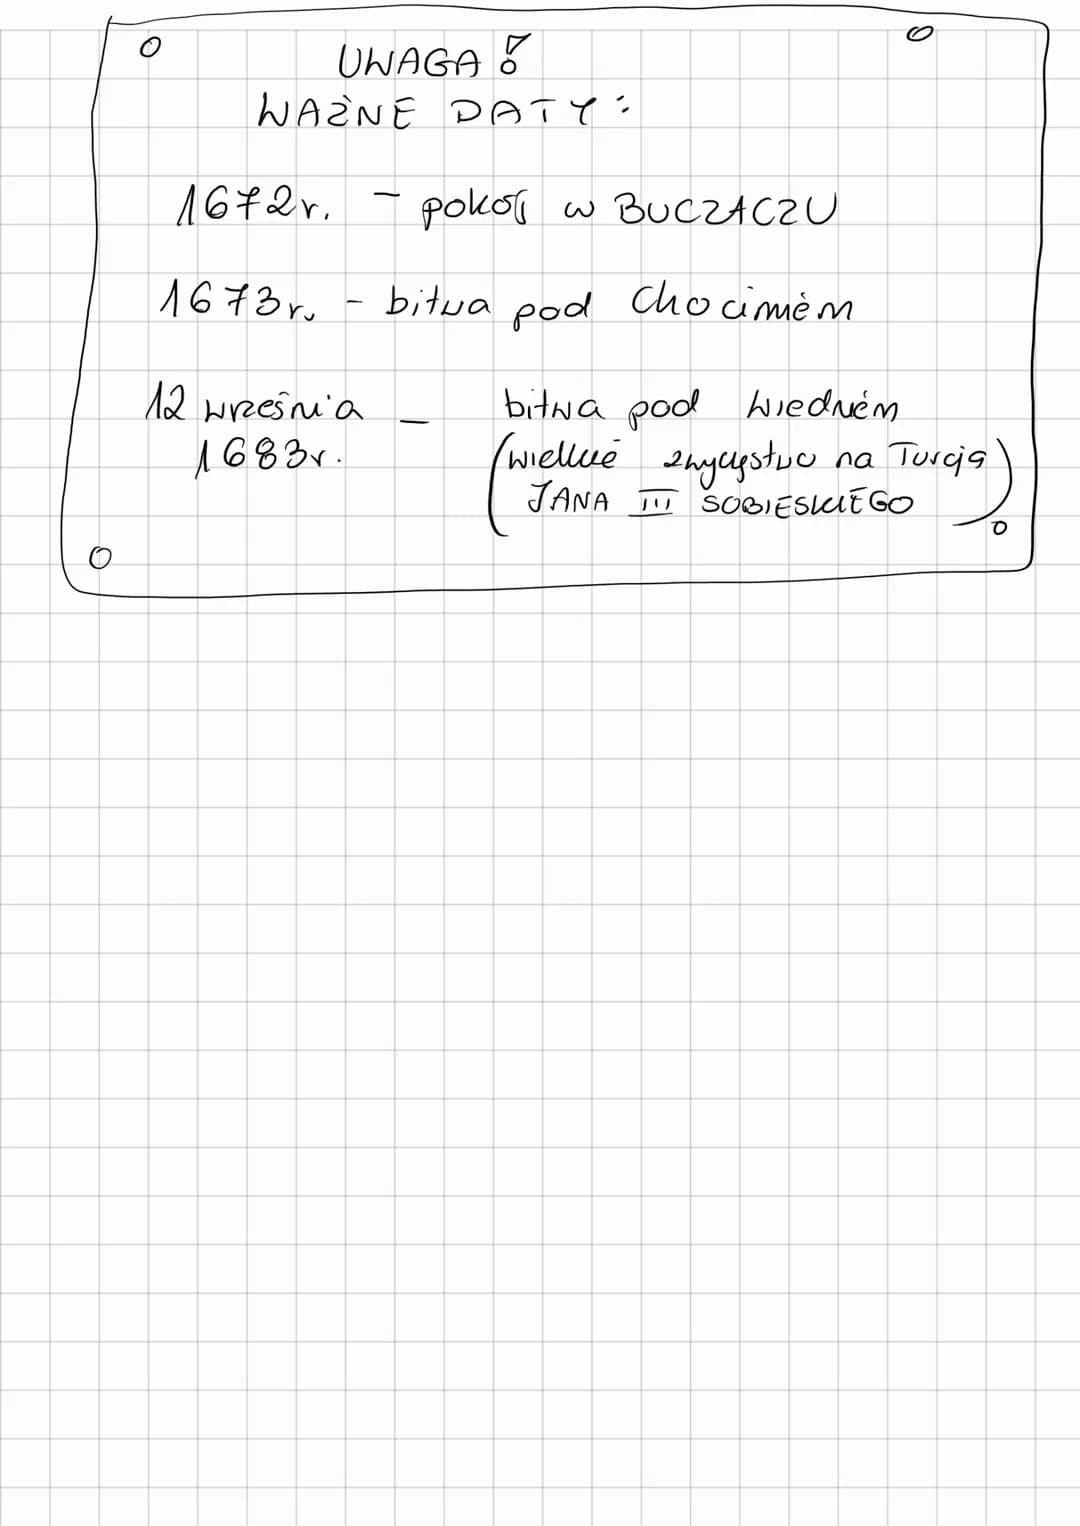 UWAGA!
WAŻNE DATY:
1672r. - pokój w BUCZACZU
1673r. - bitwa pod Chocimiem
12 września - bitwa pod Wiedniem
1683r. (wielkie zwycięstwo na Turcją
JANA III SOBIESKIEGO)